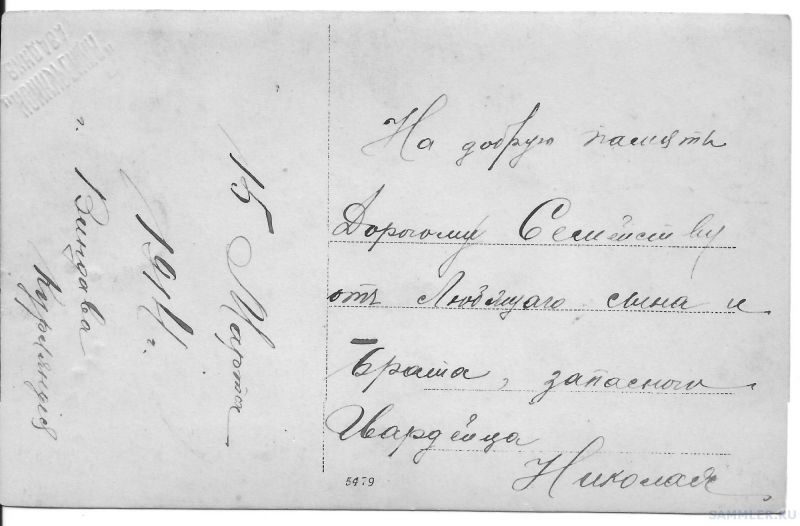 На добрую память
Дорогому Семѣйству
отъ Любящаго сына и
Брата, запаснаго
Гвардѣйца
Николая
15 Марта
1914 г.
г. Виндава
Курляндія
5479
SAMMLER.RU